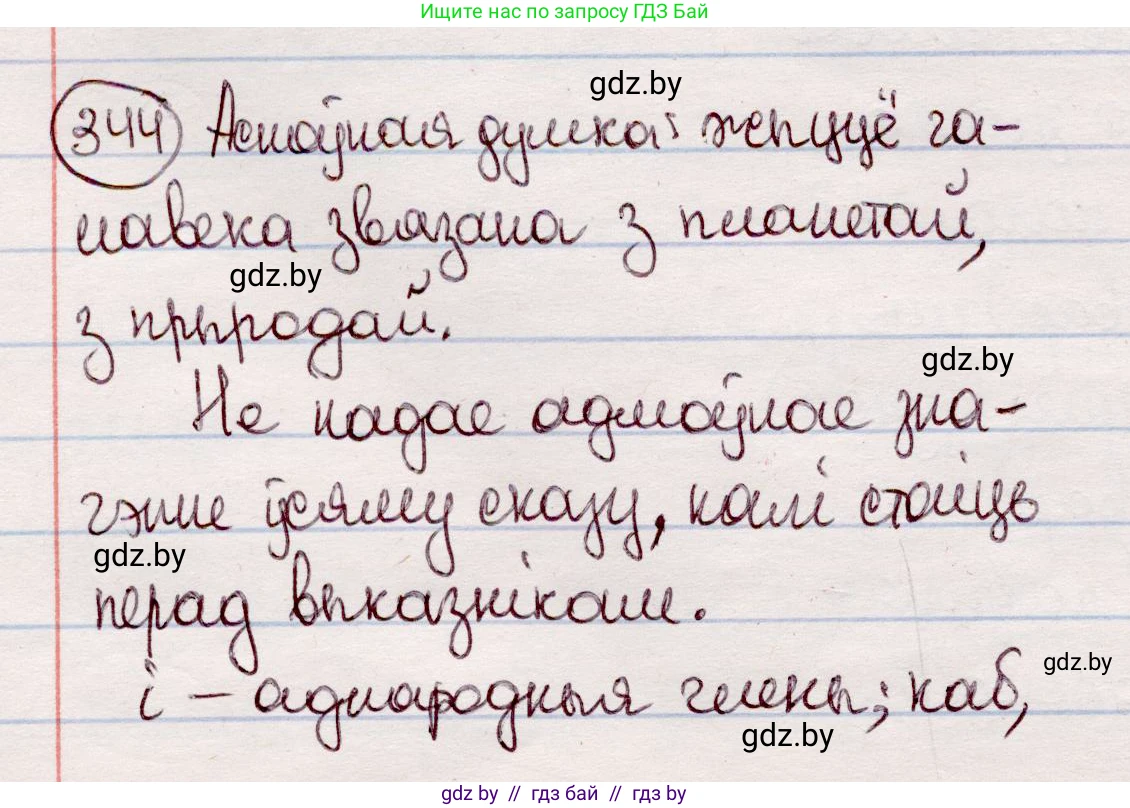 Ищите нас по запросу ГДЗ Бай
gdz.by
344 Асноўная думка: жыццё ча-
лавека звязана з планетай,
gdz.by
з прыродай.
gdz.by
Не надае адмоўнае зна-
чэнне ўсяму сказу, калі стаіць
gdz.by
перад выказнікам.
gdz.by
і – аднародныя члены; каб,
gdz.by
gdz.by // гдз бай // гдз by